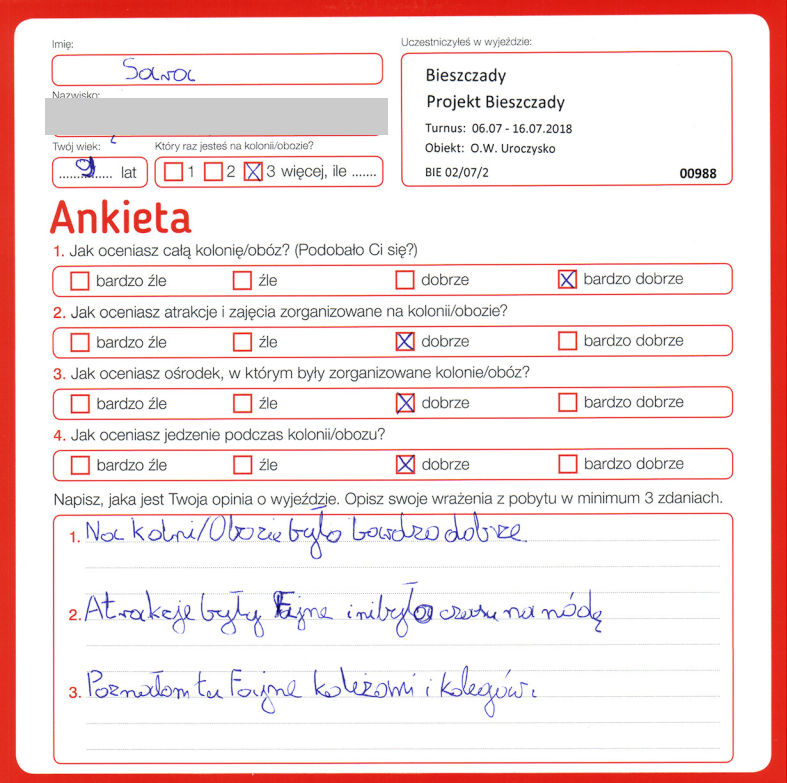 Imię:
Uczestniczyłeś w wyjeździe:
Sara
Bieszczady
Projekt Bieszczady
Turnus: 06.07 - 16.07.2018
Obiekt: O.W. Uroczysko
BIE 02/07/2 00988
Nazwisko:
Twój wiek: Który raz jesteś na kolonii/obozie?
9 lat 1 2 3 więcej, ile .......
Ankieta
1. Jak oceniasz całą kolonię/obóz? (Podobało Ci się?)
bardzo źle źle dobrze bardzo dobrze
2. Jak oceniasz atrakcje i zajęcia zorganizowane na kolonii/obozie?
bardzo źle źle dobrze bardzo dobrze
3. Jak oceniasz ośrodek, w którym były zorganizowane kolonie/obóz?
bardzo źle źle dobrze bardzo dobrze
4. Jak oceniasz jedzenie podczas kolonii/obozu?
bardzo źle źle dobrze bardzo dobrze
Napisz, jaka jest Twoja opinia o wyjeździe. Opisz swoje wrażenia z pobytu w minimum 3 zdaniach.
1. Na kolni/Obozie było bardzo dobrze
2. Atrakcje były Fajne i nibyło czasu na nódę
3. Poznałam tu Fajne koleżami i kolegów.